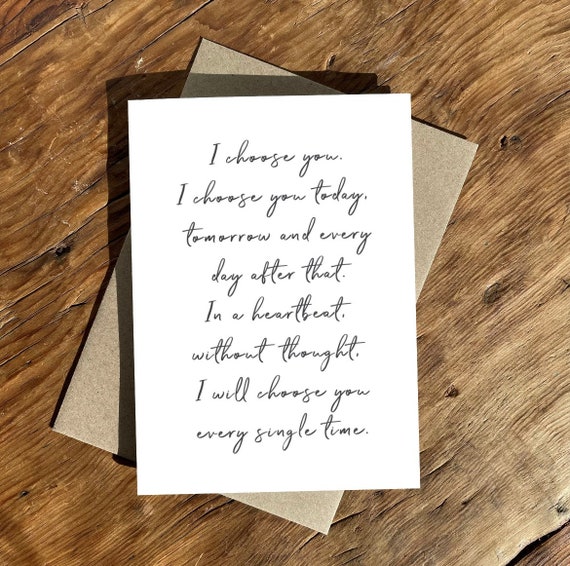 I choose you.
I choose you today,
tomorrow and every
day after that.
In a heartbeat,
without thought,
I will choose you
every single time.